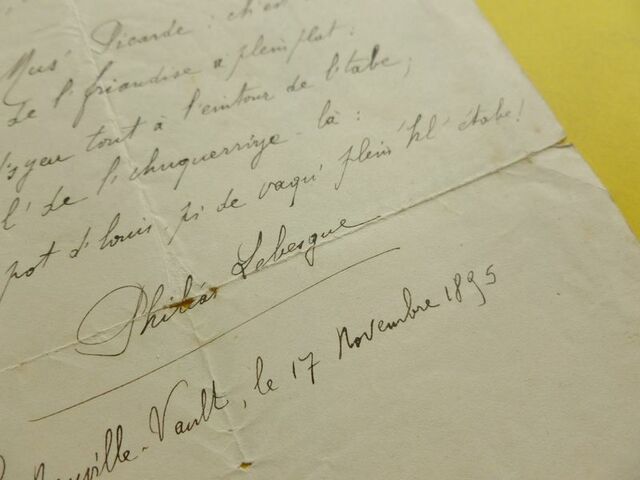 Mus' Picarde : ch'es
De l' friandise a plein plat :
tout à l'eintour de l'tabe ;
l' De l' chuquerriye - là :
pot d' louis pi de vaqu' plein hl' étabe !
Philéas Lebesgue
Neuville-Vault, le 17 Novembre 1895